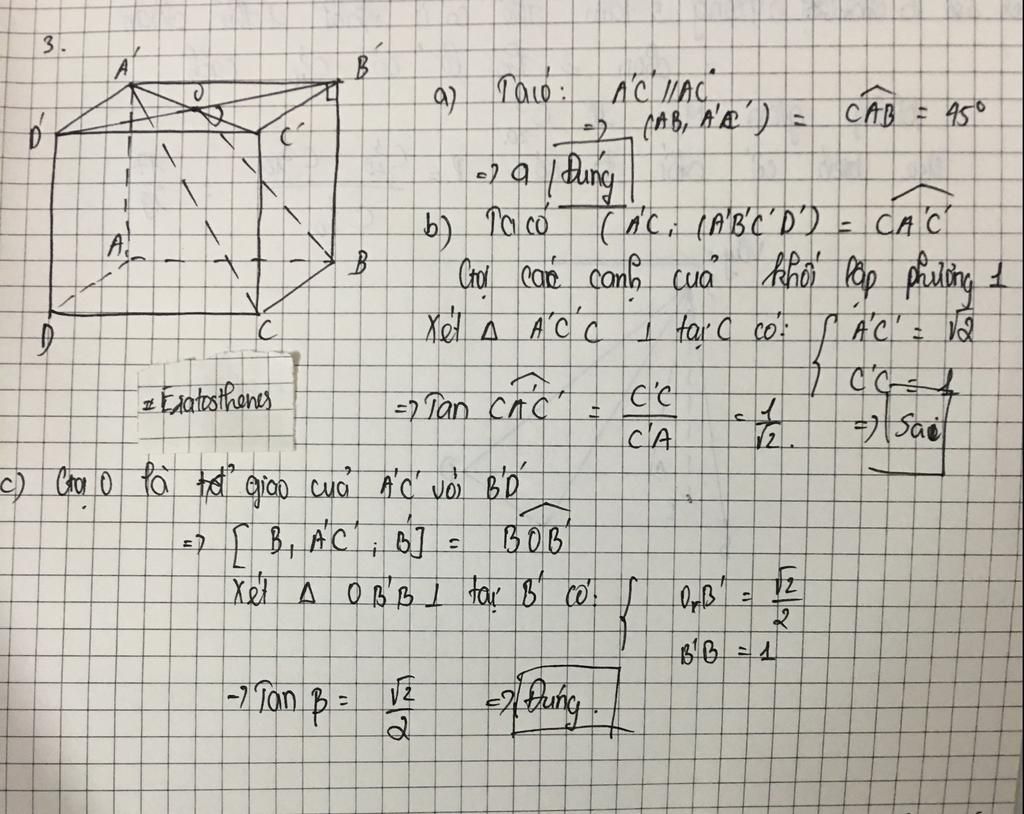 3.
A' B' O D' C' A B D C
a) Ta có: A'C' // AC
=> (AB, A'C') = CAB = 45°
=> a Đúng
b) Ta có (A'C; (A'B'C'D')) = CA'C'
Gọi các cạnh của khối lập phương 1
Xét Δ A'C'C ⊥ tại C có: { A'C' = √2
C'C = 1
= Eratosthenes
=> Tan CA'C' = C'C / C'A = 1/√2. => Sai
c) Gọi O là giao của A'C' với B'D'
=> [B, A'C', B'] = BOB'
Xét Δ OB'B ⊥ tại B' có: { OB' = √2/2
B'B = 1
-> Tan β = √2/2 => Đúng.